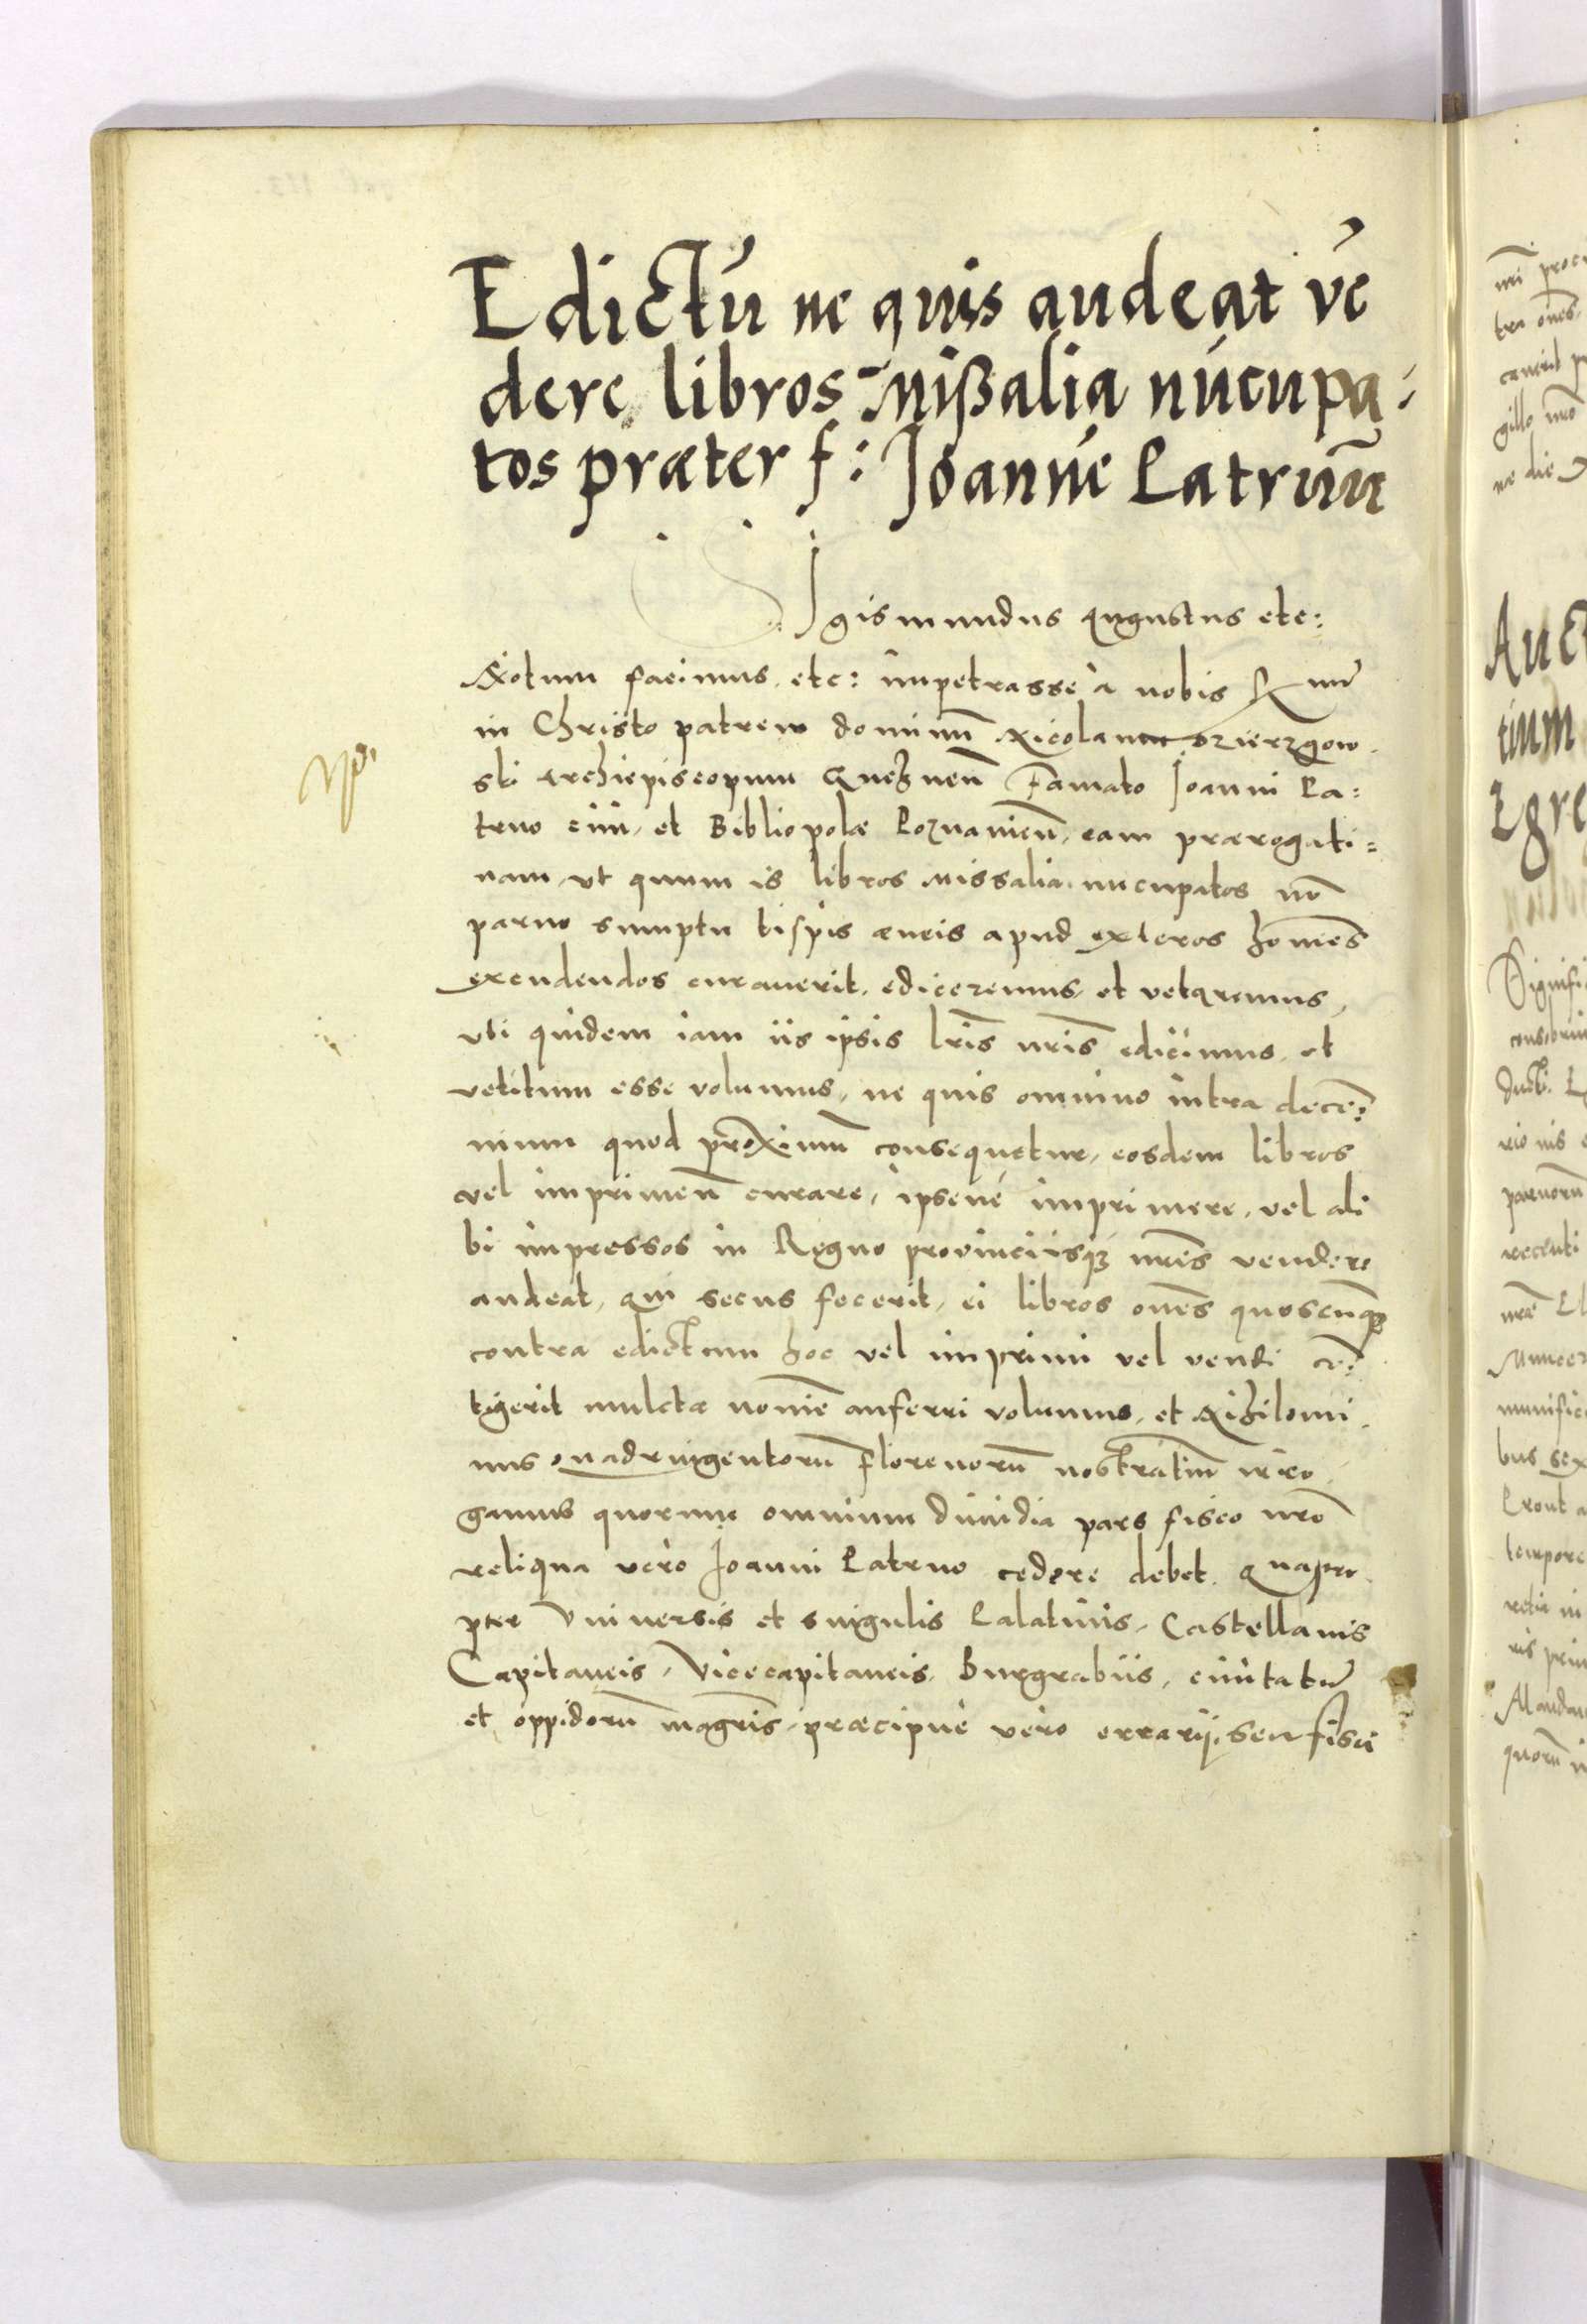 Edictū ne quis audeat vē
dere libros Mißalia nūcupa-
tos præter f: Joannē Patruū
Sigismundus Augustus etc:
Notum facimus etc: impetrasse à nobis Rmū
in Christo patrem dominū Nicolaum Dzierzgow-
ski Archiepiscopum Gneznen̄ Famato Joanni Pa-
truo ciui et Bibliopolæ Poznanien̄, eam prærogati-
uam, vt quum is libros Missalia nucupatos nō
paruo sumptu tispis æneis apud exteros homēs
excudendos curauerit, ediceremus et vetaremus,
vti quidem iam iis ipsis lrīs nrīs edicimus, et
vetitum esse volumus, ne quis omnino intra decē-
nium quod proximum consequetur, eosdem libros
vel imprimen̄ curare, ipseuè imprimere, vel ali
bi impressos in Regno prouinciisq3 nrīs vendere
audeat, qui secus fecerit, ei libros om̄es quoscunq3
contra edictum hoc vel imprimi vel vendi cō-
tigerit mulctæ nomīe auferri volumus, et Nihilomi-
nus quadringentorū florenorū nostratiū irro-
gamus quorum omnium dimidia pars fisco nrō
reliqua vero Joanni Patruo cedere debet. Quapro-
pter Vniuersis et singulis Palatinis, Castellanis
Capitaneis, Vicecapitaneis, Burgrabiis, ciuitatū
et oppidorū magrīs, præcipuè vero errarij, seu fisci
Auct
tium
Egre